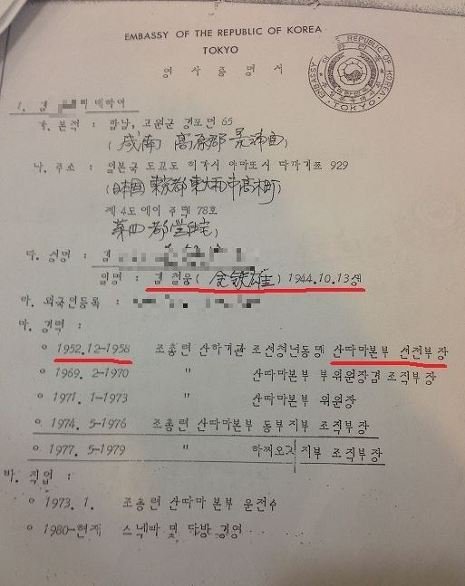 EMBASSY OF THE REPUBLIC OF KOREA
TOKYO
영사증명서
1. 김
가. 본적 : 함남, 고원군 경포면 65
(咸南 高原郡 景浦面)
나. 주소 : 일본국 도교도 히가시 야마또시 다가기쪼 929
(日本国 東京都 東大和市 高木町)
제 4도에이 주택 78호
第四 都営住宅)
다. 성명 : 김
일명 : 김철웅 (金鉄雄) 1944.10.13생
라. 외국인등록 :
마. 경력 :
o 1952.12-1958 조총련 산하기관 조선청년동맹 산따마본부 선전부장
o 1969. 2-1970 " 산따마본부 부위원장겸 조직부장
o 1971. 1-1973 " 산따마본부 위원장
o 1974. 5-1976 조총련 산따마본부 동부지부 조직부장
o 1977. 5-1979 " 하찌오지 지부 조직부장
바. 직업 :
o 1973. 1. 조총련 산따마 본부 운전수
o 1980-현재 스넥빠 및 다방 경영